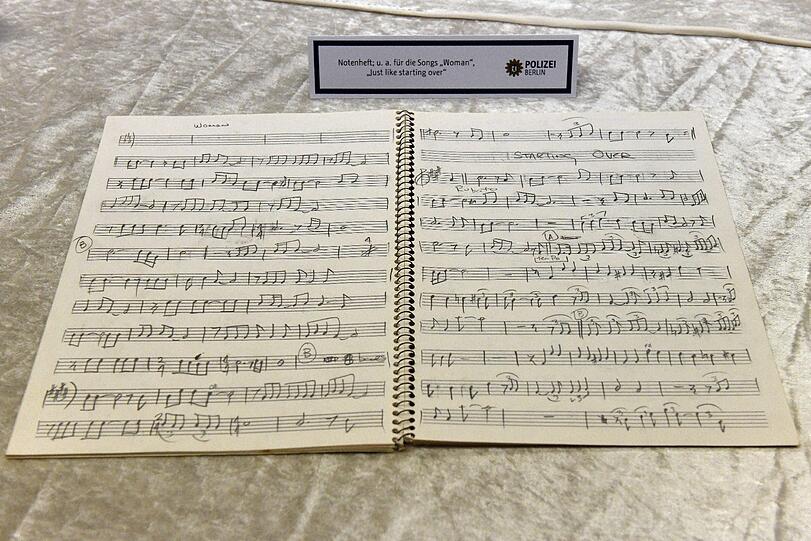 Notenheft; u. a. für die Songs „Woman",
„Just like starting over"
POLIZEI
BERLIN
Woman
STARTING OVER
Rubato
B
A
B
3